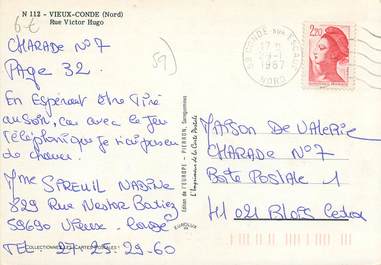 N 112 - VIEUX-CONDE (Nord)
Rue Victor Hugo
6€
59)
CHARADE N°7
PAGE 32.
En Espérant être tiré
au soir, car avec le jeu
téléphonique je n'ai pas eu
de chance.
Mme SIREUIL NADINE
829 Rue Nestor Bouliez
59690 Vieux-Condé
TEL: 27-25-29-60
COLLECTIONNEZ LES CARTES POSTALES
Edition de l'EUROPE - PIERRON, Sarreguemines
L'Impression de la Carte Postale
EUROLUX
59 CONDE SUR ESCAUT
17 H
1987
NORD
2,20
MAISON DE VALERIE
CHARADE N°7
Boite Postale 1
41 021 BLOIS Cedex